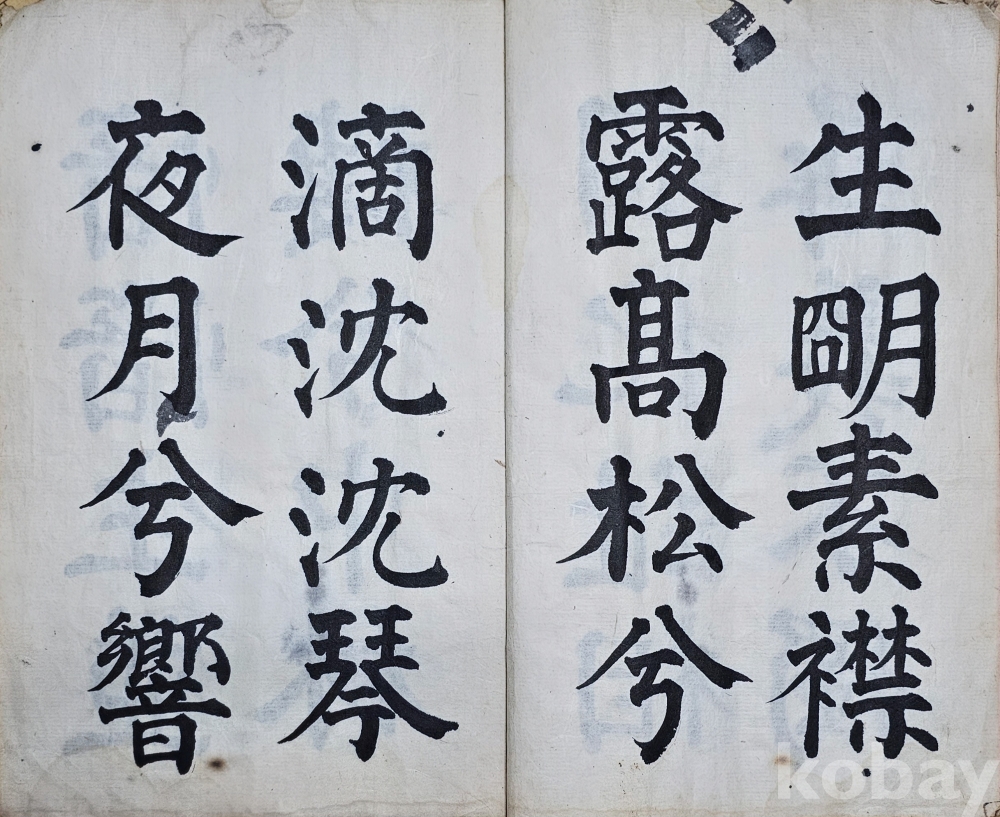 生朙素襟
露高松兮
滴沈沈琴
夜月兮響
kobay